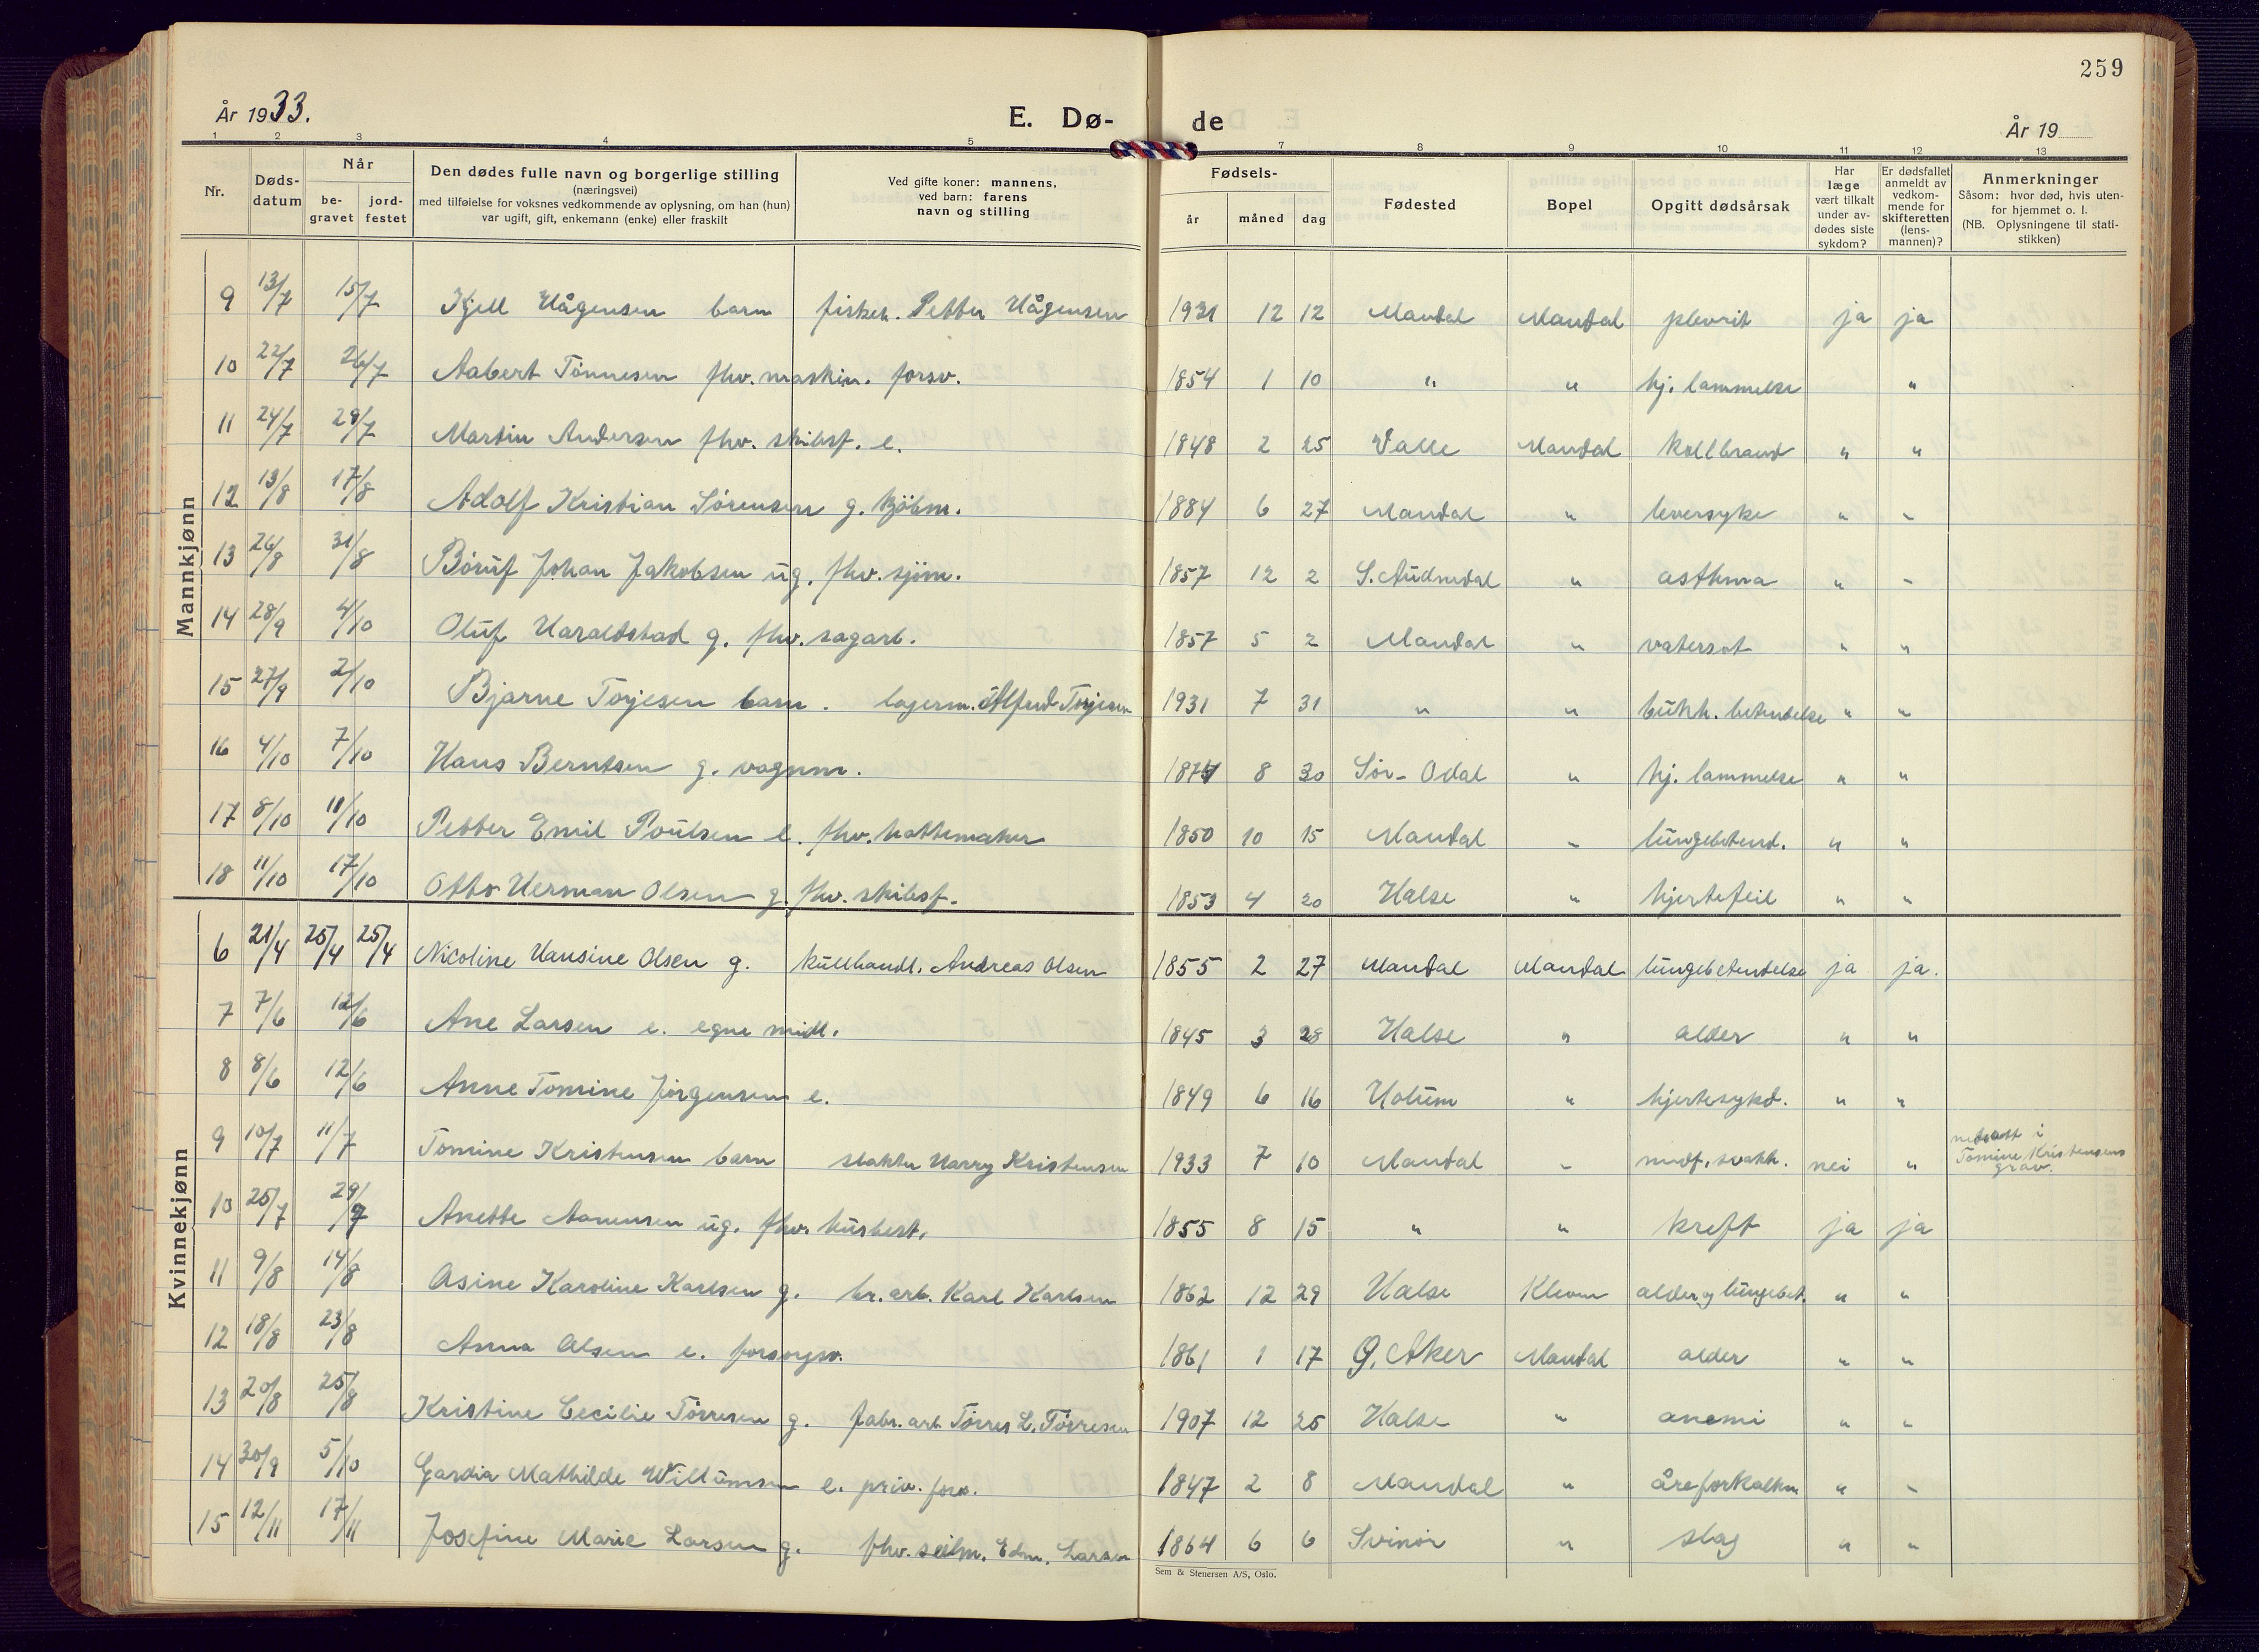 259
År 1933.
E. Dø- de
År 19
1 2 3 4 5 7 8 9 10 11 12 13
Nr.
Døds-datum
Når
be-gravet
jord-festet
Den dødes fulle navn og borgerlige stilling
(næringsvei)
med tilføielse for voksnes vedkommende av oplysning, om han (hun)
var ugift, gift, enkemann (enke) eller fraskilt
Ved gifte koner: mannens,
ved barn: farens
navn og stilling
Fødsels-
år måned dag
Fødested
Bopel
Opgitt dødsårsak
Har læge vært tilkalt under av-dødes siste sykdom?
Er dødsfallet anmeldt av vedkom-mende for skifteretten (lens-mannen)?
Anmerkninger
Såsom: hvor død, hvis uten-for hjemmet o. l.
(NB. Oplysningene til stati-stikken)
Mannkjønn
9 13/7 15/7 Kjell Hågensen barn fisker. Petter Hågensen 1931 12 12 Mandal Mandal plevrit ja ja
10 22/7 26/7 Aabert Tönnesen fhv. maskin. forsv. 1854 1 10 " " hj. lammelse "
11 24/7 29/7 Martin Andersen fhv. skibsf. e. 1848 2 25 Valle Mandal kollbrand " "
12 13/8 17/8 Adolf Kristian Sörensen g. kjöbm. 1884 6 27 Mandal " leversyke " "
13 26/8 31/8 Börüf Johan Jakobsen ug. fhv. sjöm. 1857 12 2 S. Audnedal " asthma " "
14 28/9 4/10 Oluf Haraldstad g. fhv. sagarb. 1857 5 2 Mandal " vatersot " "
15 27/9 2/10 Bjarne Torjesen barn. lagerm. Alfred Torjesen 1931 7 31 " " bukh. betendelse " "
16 4/10 7/10 Hans Berntsen g. vognm. 1874 8 30 Sör-Odal " hj. lammelse " "
17 8/10 11/10 Petter Emil Poulsen e. fhv. hattemaker 1850 10 15 Mandal " lungebetend. " "
18 11/10 17/10 Otto Herman Olsen g. fhv. skibsf. 1853 4 20 Halse " hjertefeil " "
Kvinnekjønn
6 21/4 25/4 25/4 Nicoline Hansine Olsen g. kullhandl. Andreas Olsen 1855 2 27 Mandal Mandal lungebetendelse ja ja.
7 7/6 12/6 Ane Larsen e. egne midl. 1845 3 28 Halse " alder " "
8 8/6 12/6 Anne Tomine Jörgensen e. 1849 6 16 Holum " hjertesykd. " "
9 10/7 11/7 Tomine Kristensen barn slakter Harry Kristensen 1933 7 10 Mandal " medf. svakh. nei " nedsatt i Tomine Kristensens grav.
10 25/7 29/7 Anette Aanensen ug. fhv. husbest. 1855 8 15 " " kreft ja ja
11 9/8 14/8 Asine Karoline Karlsen g. br. arb. Karl Karlsen 1862 12 29 Halse Kleven alder og lungebet. " "
12 18/8 23/8 Anna Olsen e. forsorgsv. 1861 1 17 Ø. Aker Mandal alder " "
13 20/8 25/8 Kristine Cecilie Törresen g. fabr. arb. Törres L. Törresen 1907 12 25 Halse " anemi " "
14 30/9 5/10 Gardia Mathilde Willumsen e. priv. forv. 1847 2 8 Mandal " åreforkalkn " "
15 12/11 17/11 Josefine Marie Larsen g. fhv. seilm. Edm. Larsen 1864 6 6 Svinör " slag " "
Sem & Stenersen A/S, Oslo.